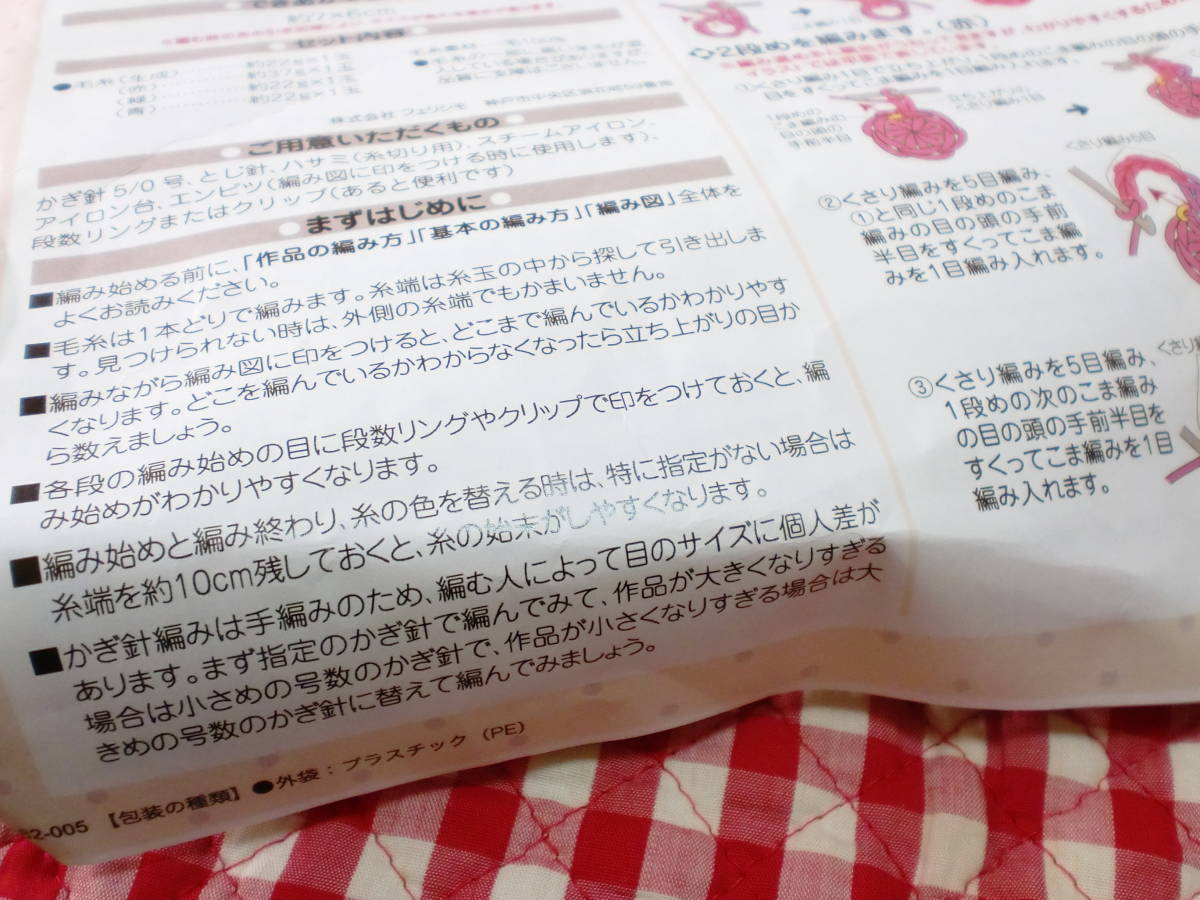 約2×6cm
セット内容
●毛糸(生成)……約22g×1玉
(赤)……約37g×1玉
(緑)……約22g×1玉
(青)……約22g×1玉
株式会社 フェリシモ
ご用意いただくもの
かぎ針 5/0 号、とじ針、ハサミ(糸切り用)、スチームアイロン、
アイロン台、エンピツ(編み図に印をつける時に使用します)、
段数リングまたはクリップ(あると便利です)
まずはじめに
■編み始める前に、「作品の編み方」「基本の編み方」「編み図」全体を
よくお読みください。
■毛糸は1本どりで編みます。糸端は糸玉の中から探して引き出しま
す。見つけられない時は、外側の糸端でもかまいません。
■編みながら編み図に印をつけると、どこまで編んでいるかわかりやす
くなります。どこを編んでいるかわからなくなったら立ち上がりの目か
ら数えましょう。
■各段の編み始めの目に段数リングやクリップで印をつけておくと、編
み始めがわかりやすくなります。
■編み始めと編み終わり、糸の色を替える時は、特に指定がない場合は
糸端を約10cm残しておくと、糸の始末がしやすくなります。
■かぎ針編みは手編みのため、編む人によって目のサイズに個人差が
あります。まず指定のかぎ針で編んでみて、作品が大きくなりすぎる
場合は小さめの号数のかぎ針で、作品が小さくなりすぎる場合は大
きめの号数のかぎ針に替えて編んでみましょう。
82-005 【包装の種類】●外袋：プラスチック (PE)
◇2段めを編みます。(赤)
1段めの
こま編みの
目の頭の
手前半目
立ち上がりの
くさり編み1目
くさり編み5目
②くさり編みを5目編み、
①と同じ1段めのこま
編みの目の頭の手前
半目をすくってこま編
みを1目編み入れます。
③くさり編みを5目編み、
1段めの次のこま編み
の目の頭の手前半目を
すくってこま編みを1目
編み入れます。